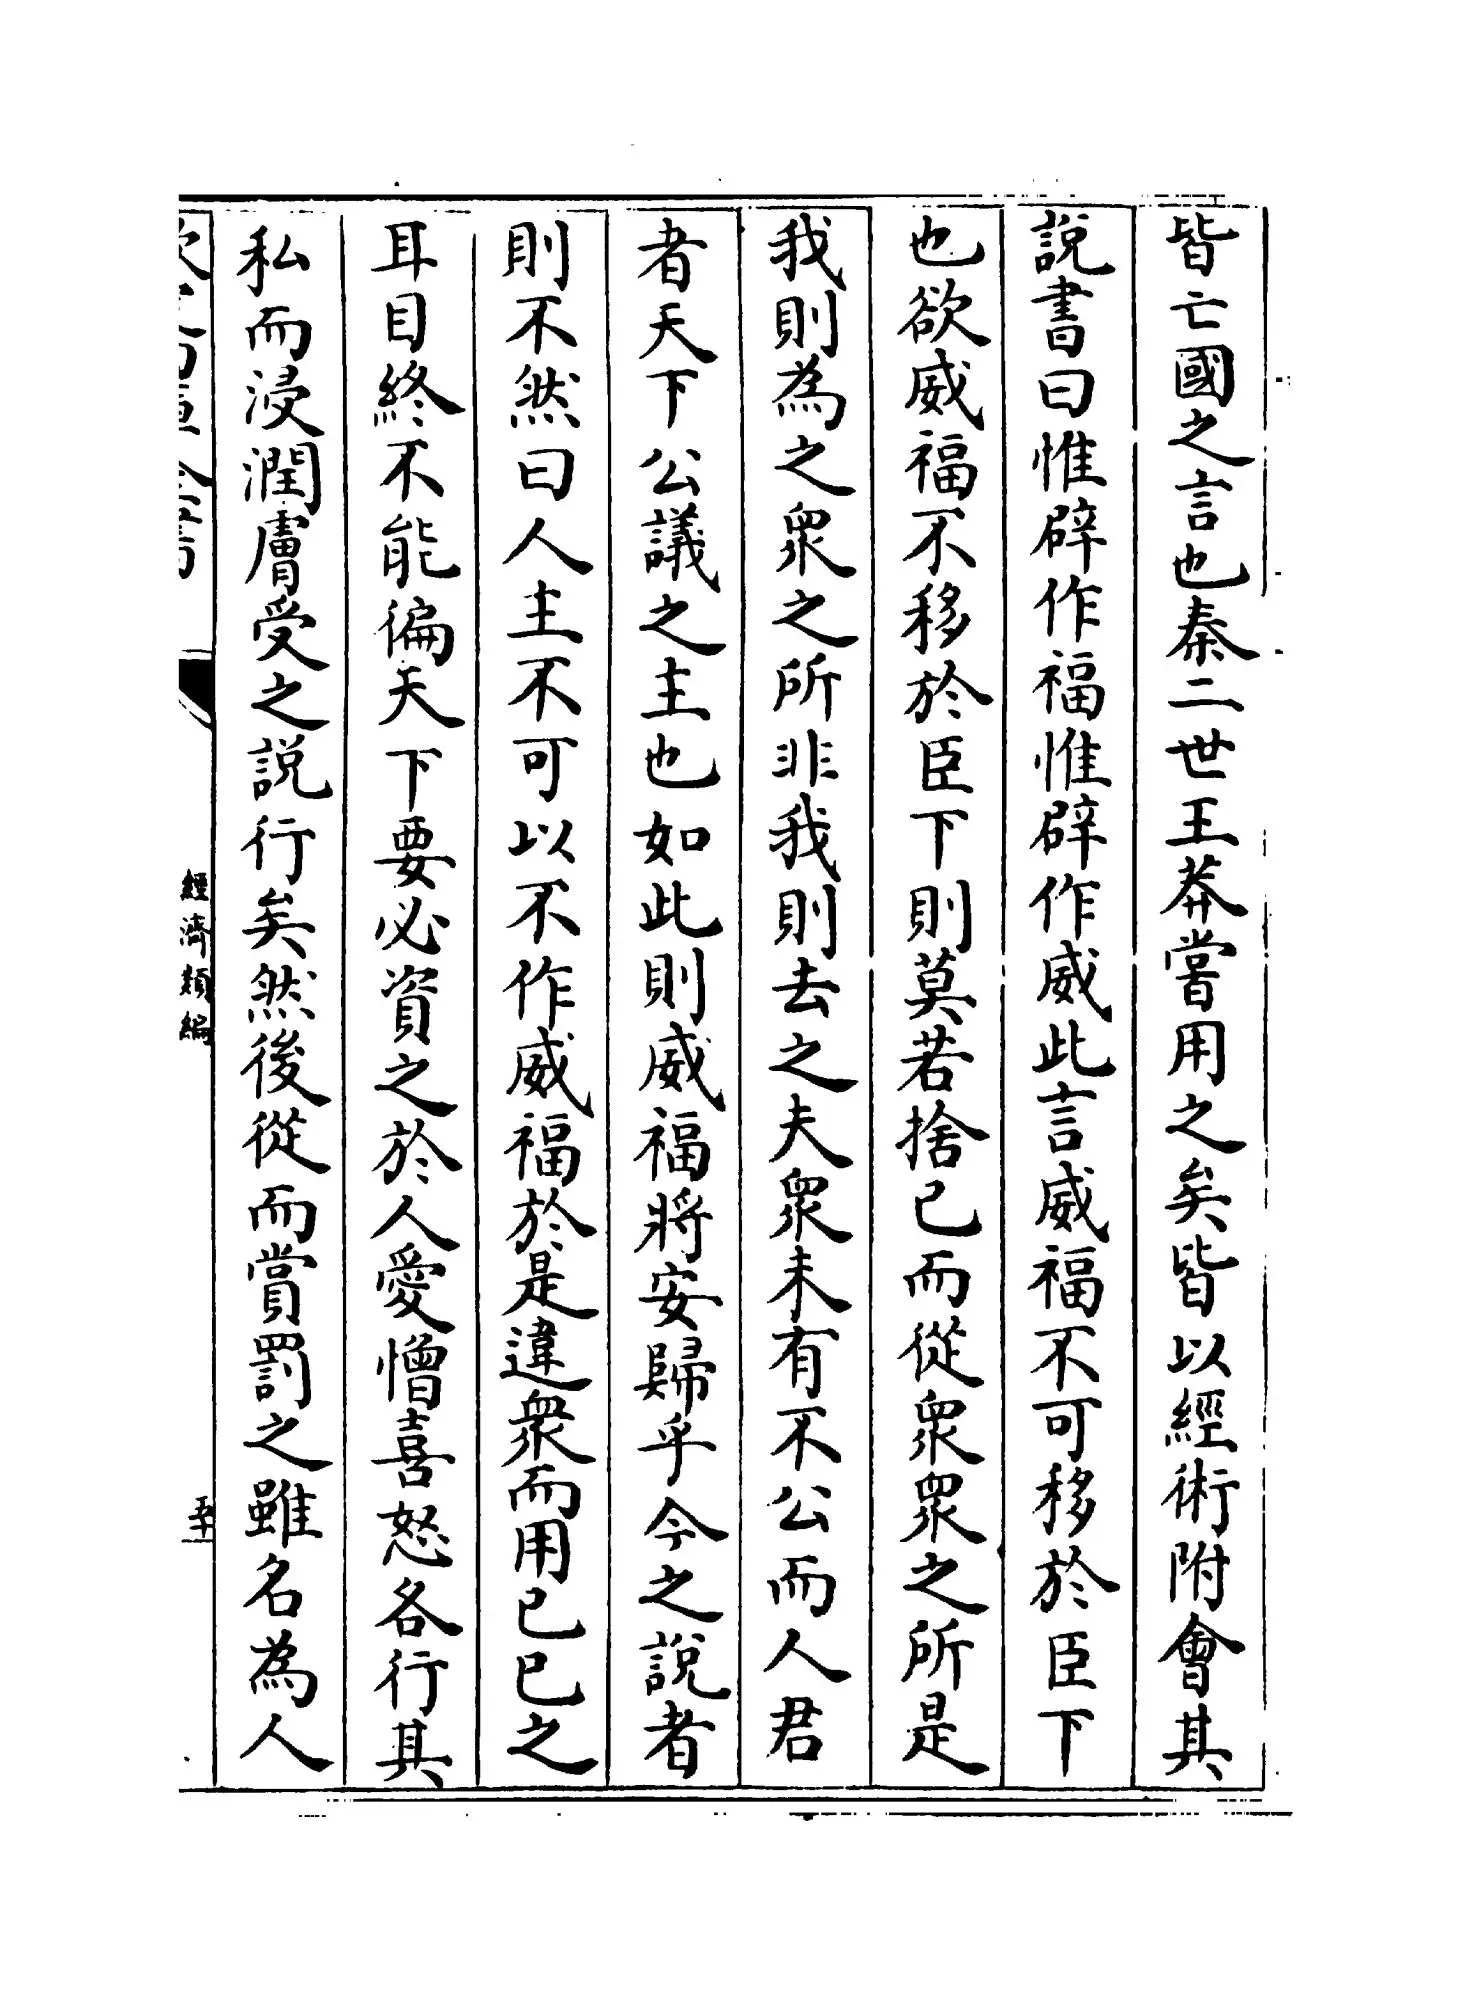 皆亡國之言也秦二世王莽嘗用之矣皆以經術附會其
說書曰惟辟作福惟辟作威此言威福不可移於臣下
也欲威福不移於臣下則莫若捨已而從衆衆之所是
我則為之衆之所非我則去之夫衆未有不公而人君
者天下公議之主也如此則威福將安歸乎今之說者
則不然曰人主不可以不作威福於是違衆而用已已之
耳目終不能徧天下要必資之於人愛憎喜怒各行其
私而浸潤膚受之說行矣然後從而賞罰之雖名為人
欽定四庫全書
經濟類編
五十